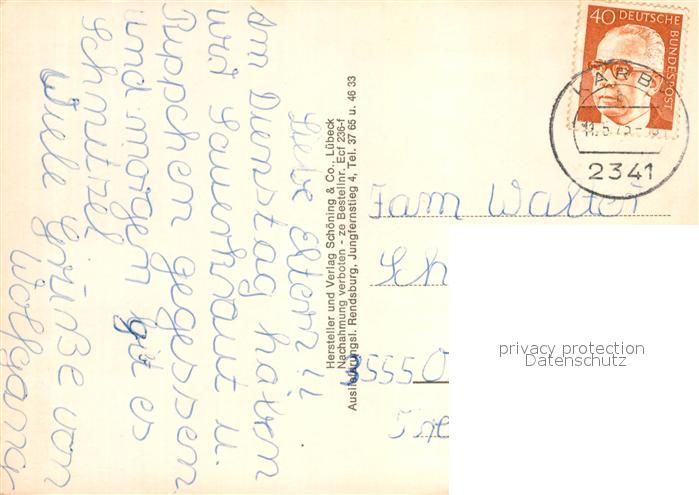 Liebe Eltern!!
Am Dienstag haben
wir Sauerkraut u.
Püppchen gegessen.
und morgen gibt es
Schnitzel
Viele Grüße von
Wolfgang
Hersteller und Verlag Schöning & Co., Lübeck
Nachahmung verboten - ze Bestellnr. Ecf 236-f
Auslieferungsl. Rendsburg, Jungfernstieg 4, Tel. 37 65 u. 46 33
40 DEUTSCHE BUNDESPOST
2341
Fam Walter
Sch
5550
privacy protection
Datenschutz